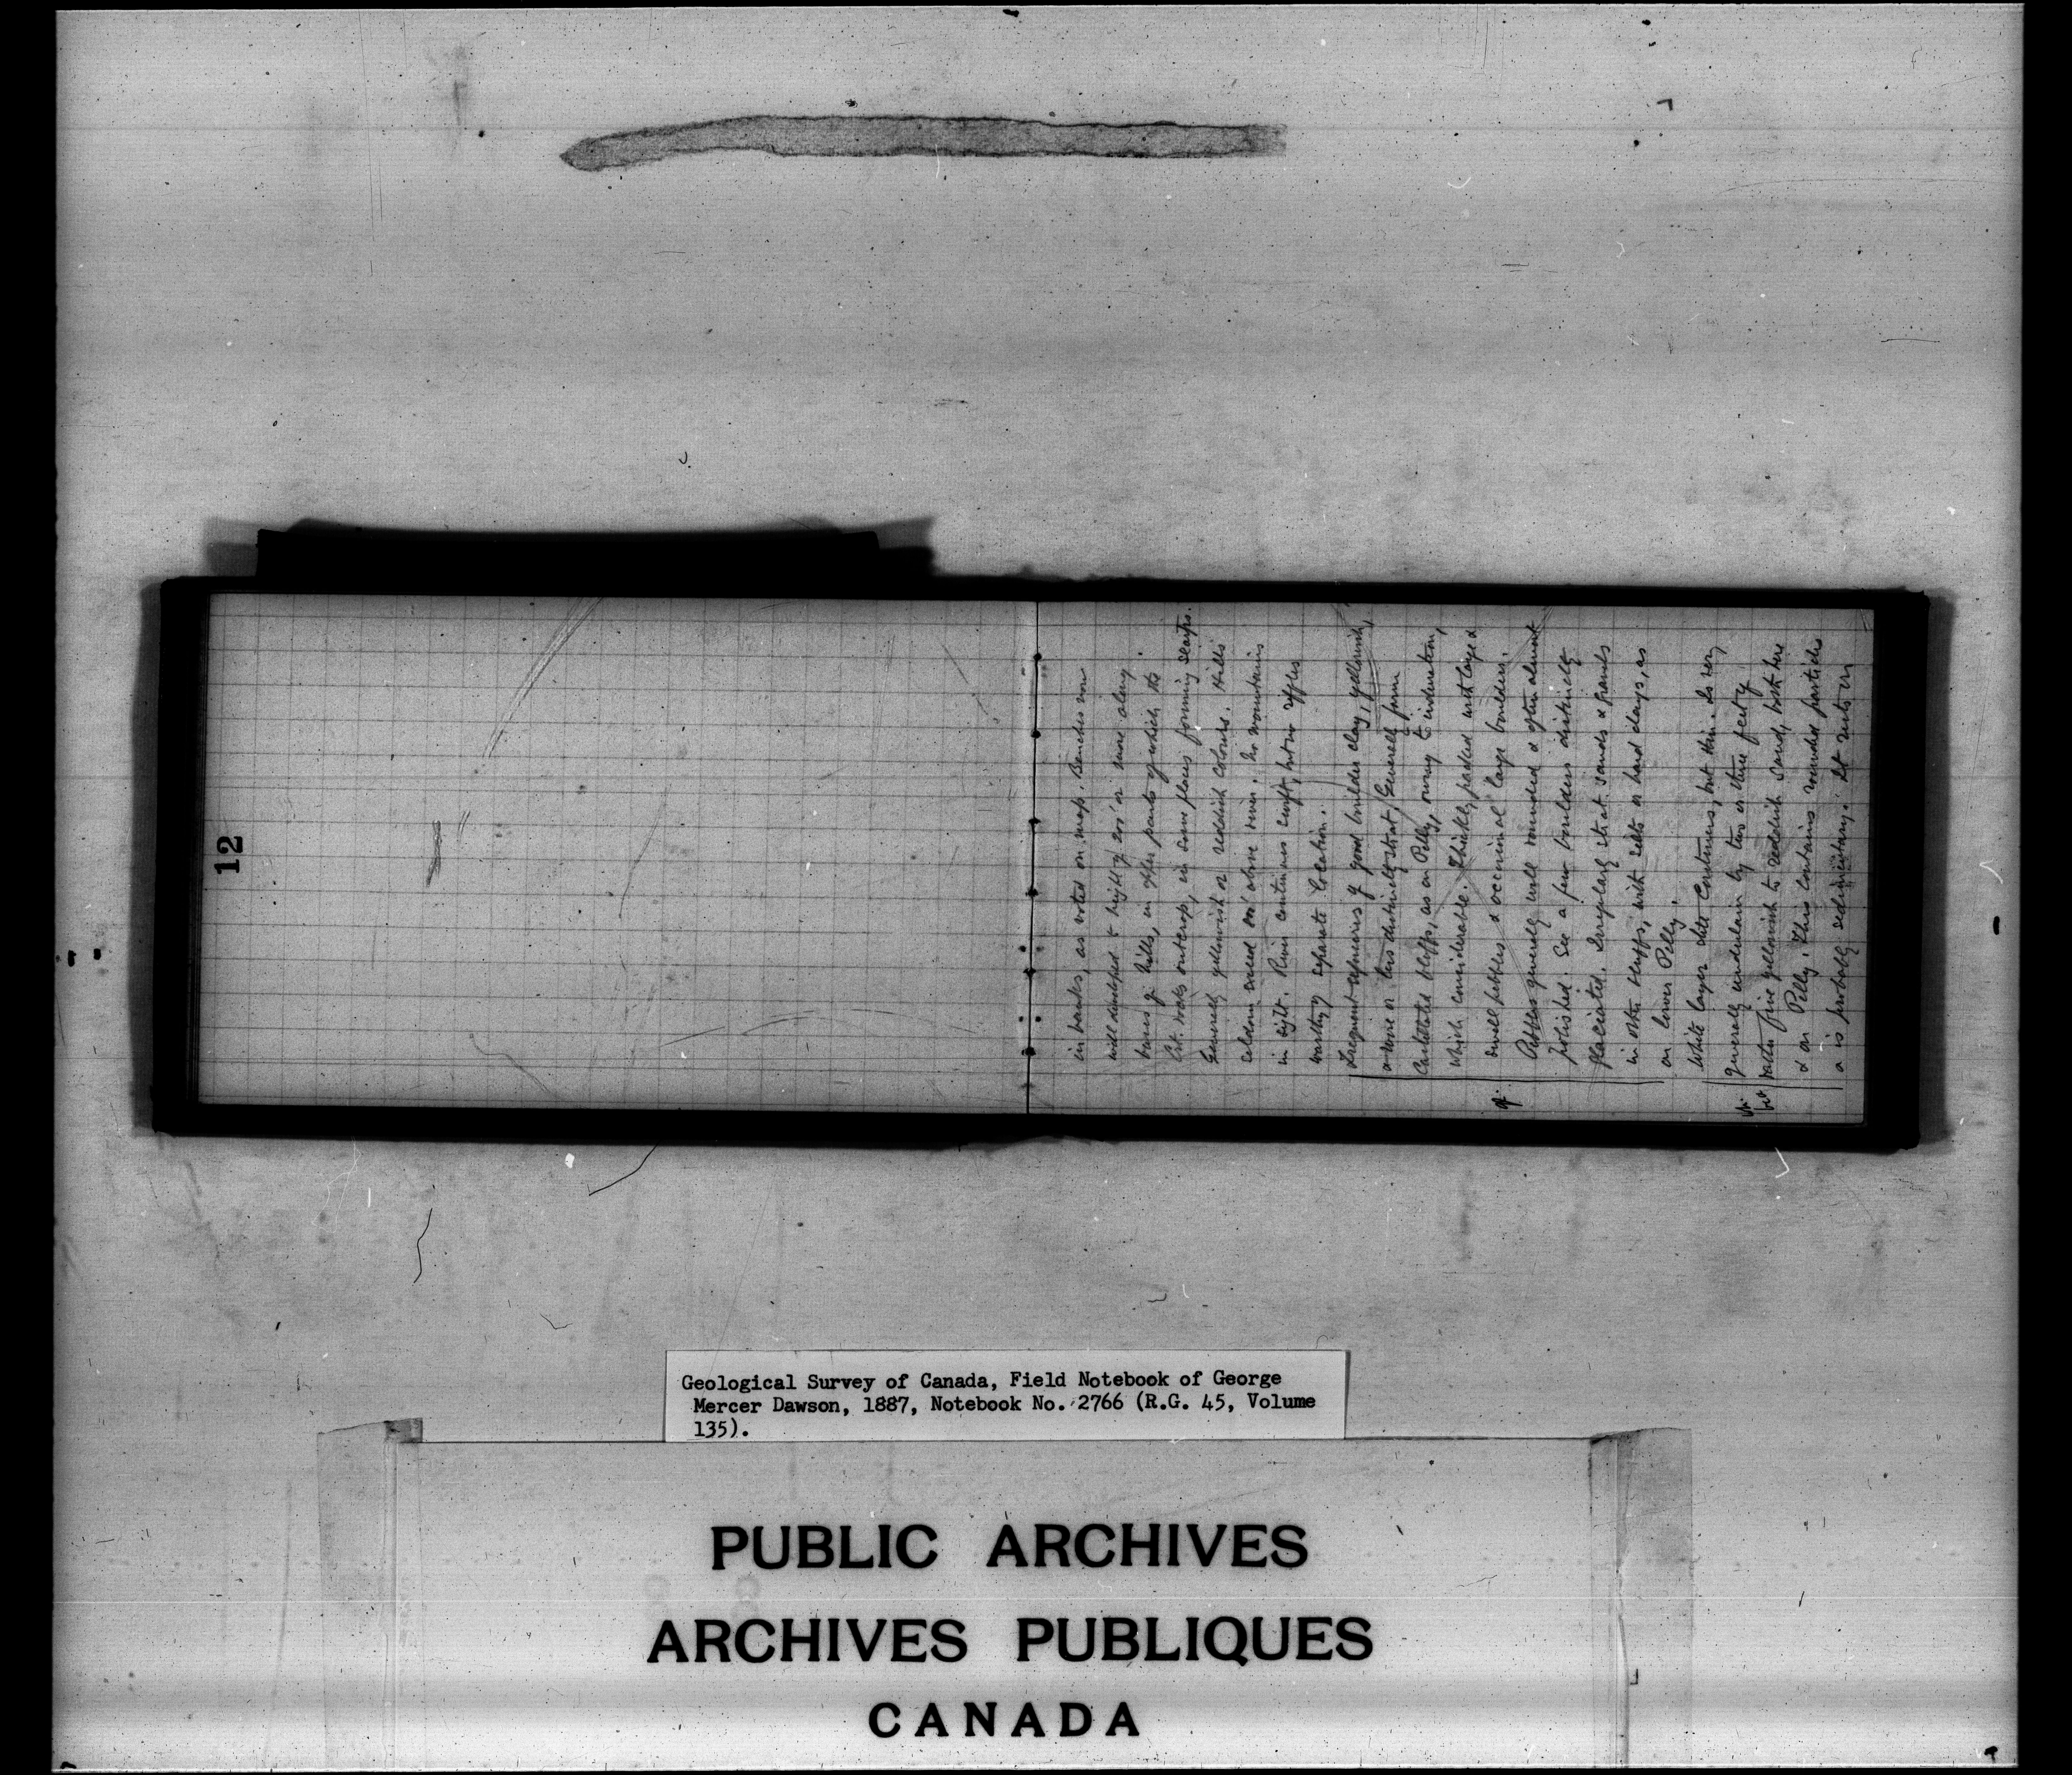 12
in banks, as noted on map. Benches now
well developed to height of 200' or more along
bases of hills, in upper parts of which the
rocks outcrop, in some places forming scarps.
Generally yellowish or reddish colours. Hills
seldom above river. No mountains
in sight. River continues swift, but no riffles
worthy separate location.
Frequent exposures of good boulder clay, yellowish,
more or less distinctly strat. Generally form
bluffs, as on Pelly, owing to induration,
which considerable. Thickly packed with large &
small pebbles & occasional large boulders.
Pebbles generally well rounded & often almost
polished. See a few boulders distinctly
glaciated. Irregularly strat. sands & gravels
in other bluffs, with silts or hard clays, as
on lower Pelly.
White layer still continues, but thin. Is very
generally underlain by two or three feet of
rather fine yellowish to reddish sand, both here
& on Pelly. This contains rounded particles
& is probably sedimentary. It rests on
Geological Survey of Canada, Field Notebook of George
Mercer Dawson, 1887, Notebook No. 2766 (R.G. 45, Volume
135).
PUBLIC ARCHIVES
ARCHIVES PUBLIQUES
CANADA